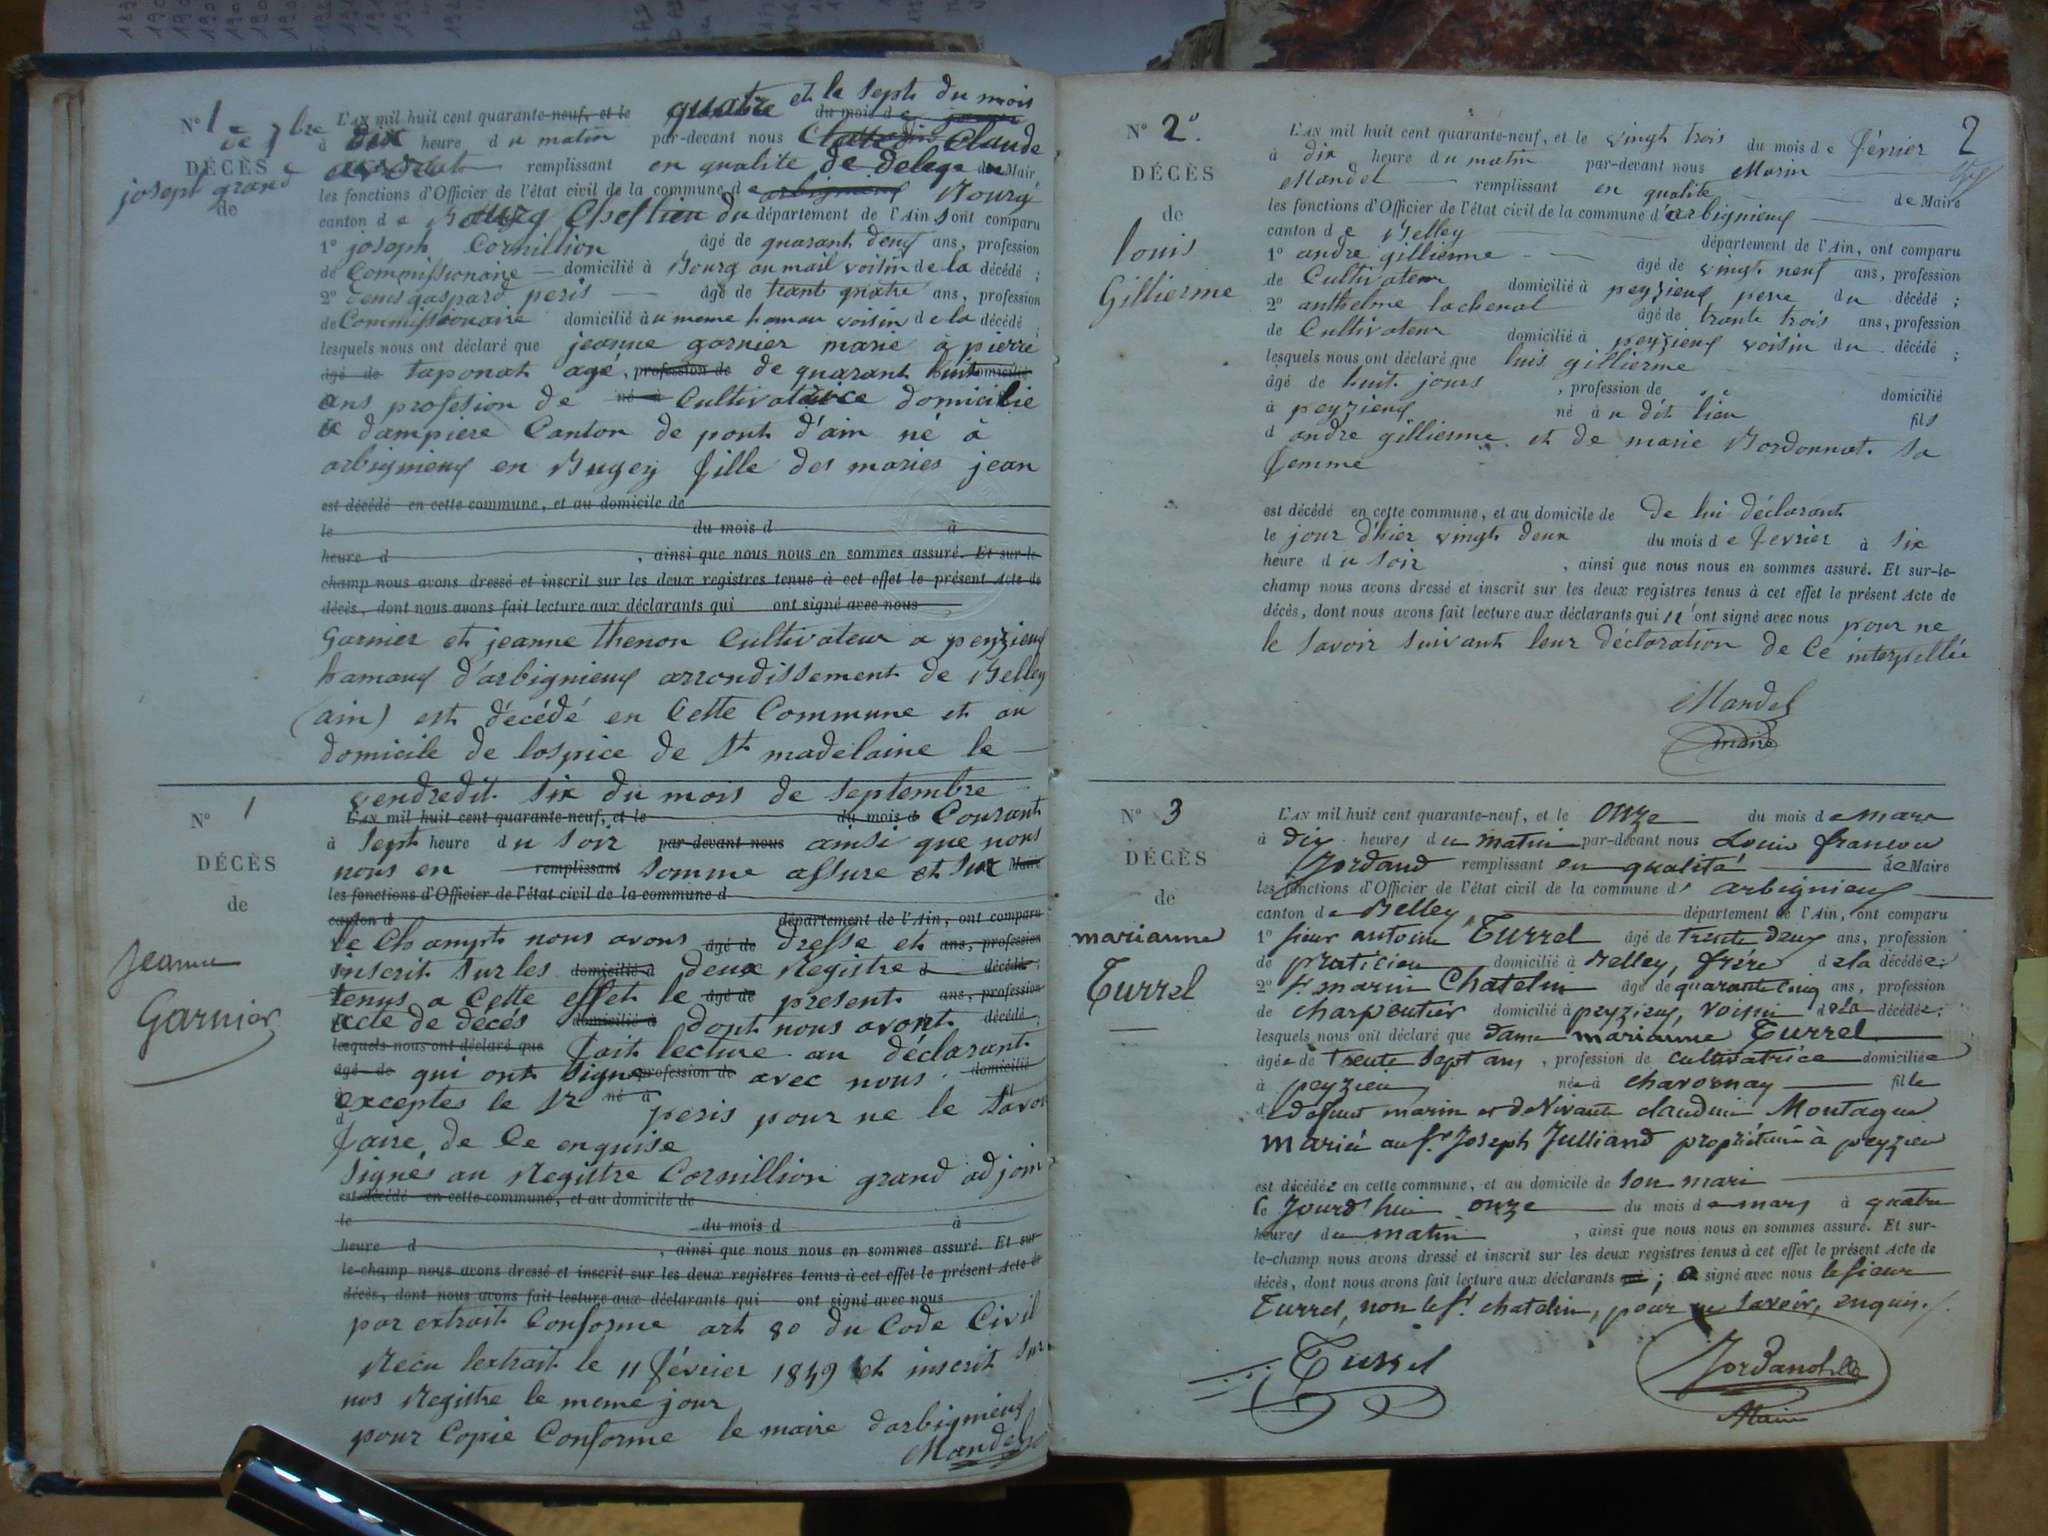 N° 1
de 7bre
DÉCÈS
joseph grand
de
et le sept du mois
L'AN mil huit cent quarante-neuf, et le quatre du mois d
à dix heure du matin par-devant nous Claude
remplissant en qualite de Mair
les fonctions d'Officier de l'état civil de la commune de arbignieux Bourg
canton de Bourg Cheflieu du département de l'Ain sont comparu
1° joseph Cornillion âgé de quarant deux ans, profession
de Commissionaire domicilié à Bourg au mail voisin de la décédé ;
2° denis gaspard peris âgé de trant quatre ans, profession
de Commissionaire domicilié au meme hamau voisin de la décédé
lesquels nous ont déclaré que jeanne garnier marie a pierre
âgé de taponat agé profession de de quarant huit domicilié
ans profesion de né à Cultivatrice domicilie
a dampiere Canton de pont d'ain né à
arbignieux en Bugey fille des maries jean
est décédé en cette commune, et au domicile de
le du mois d à
heure d , ainsi que nous nous en sommes assuré. Et sur-le-
champ nous avons dressé et inscrit sur les deux registres tenus à cet effet le présent Acte de
décès, dont nous avons fait lecture aux déclarants qui ont signé avec nous
Garnier et jeanne thenon Cultivateur a peyzieux
hamaux d'arbignieux arrondissement de Belley
(ain) est décédé en Cette Commune et au
domicile de lospice de St madelaine le
vendredit six du mois de septembre
N° 1
DÉCÈS
de
Jeanne
Garnier
L'AN mil huit cent quarante-neuf, et le du mois d Courant
à sept heure du soir par-devant nous ainsi que nous
nous en remplissant somme assure et sur Maire
les fonctions d'Officier de l'état civil de la commune d
canton d département de l'Ain, ont comparu
le Champt nous avons âgé de dresse et ans, profession
inscrit sur les domicilié à deux Registre d décédé ;
tenus a Cette effet le âgé de present ans, profession
acte de décés domicilié à dont nous avont décédé ;
lesquels nous ont déclaré que fait lecture au déclarant
âgé de qui ont signe profession de avec nous domicilié
exceptes le Sr né à peris pour ne le savoir
faire de Ce enquise
Signés au Registre Cornillion grand adjoin
est décédé en cette commune, et au domicile de
le du mois d à
heure d , ainsi que nous nous en sommes assuré. Et sur-
le-champ nous avons dressé et inscrit sur les deux registres tenus à cet effet le présent Acte de
décès, dont nous avons fait lecture aux déclarants qui ont signé avec nous
par extrait Conforme art 80 du Code Civil
Recu lextrait le 11 février 1849 et inscrit sur
nos Registre le meme jour
pour Copie Conforme le maire d'arbignieux
Mandel
2
N° 2°.
DÉCÈS
de
louis
Gillierme
L'AN mil huit cent quarante-neuf, et le vingt trois du mois de février
à dix heure du matin par-devant nous Marin
Mandel remplissant en qualite de Maire
les fonctions d'Officier de l'état civil de la commune d'arbignieux
canton de Belley département de l'Ain, ont comparu
1° andre gillierme âgé de vingt neuf ans, profession
de Cultivateur domicilié à peyzieux pere du décédé ;
2° anthelme lachenal âgé de trante trois ans, profession
de Cultivateur domicilié à peyzieux voisin du décédé ;
lesquels nous ont déclaré que luis gillierme
âgé de huit jours , profession de domicilié
à peyzieux né au dit lieu fils
d andre gillierme et de marie Bordonnat sa
femme
est décédé en cette commune, et au domicile de de lui déclarant
le jour d'hier vingt deux du mois de fevrier à six
heure du soir , ainsi que nous nous en sommes assuré. Et sur-le-
champ nous avons dressé et inscrit sur les deux registres tenus à cet effet le présent Acte de
décès, dont nous avons fait lecture aux déclarants qui n'ont signé avec nous pour ne
le savoir suivant leur déclaration de Ce interpellée
Mandel
maire
N° 3
DÉCÈS
de
marianne
Turrel
L'AN mil huit cent quarante-neuf, et le onze du mois de mars
à dix heures du matin par-devant nous Louis francois
Jordand remplissant en qualité de Maire
les fonctions d'Officier de l'état civil de la commune d' arbignieux
canton de Belley département de l'Ain, ont comparu
1° sieur antoine Turrel âgé de trente deux ans, profession
de praticien domicilié à Belley, frère de la décédée ;
2° Sr marin Chatelin âgé de quarante cinq ans, profession
de charpentier domicilié à peyzieux, voisin de la décédée ;
lesquels nous ont déclaré que dame marianne Turrel
âgée de trente sept ans , profession de cultivatrice domiciliée
à peyzieu née à chavornay fille
de defunt marin et de vivante claudine Montagne
mariée au Sr Joseph Julliand propriétaire à peyzieu
est décédée en cette commune, et au domicile de son mari
ce Jourd'hui onze du mois de mars à quatre
heures du matin , ainsi que nous nous en sommes assuré. Et sur-
le-champ nous avons dressé et inscrit sur les deux registres tenus à cet effet le présent Acte de
décès, dont nous avons fait lecture aux déclarants ; a signé avec nous le sieur
Turrel, non le Sr chatelin, pour ne savoir, enquis.
Turrel
Jordand
Maire